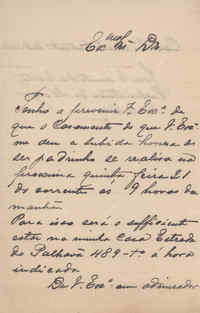 Exmo Sr. Dr.
Tenho a prevenir V. Exª. de
que o Casamento de que V. Exª
me deu a subida honra de
ser padrinho se realisa na
proxima quinta feira 21
do corrente ás 9 horas da
manhã.
Para isso será o sufficiente
estar na minha casa Estrada
de Palhavã 489-1º á hora
indicada
De V. Exª um admirador